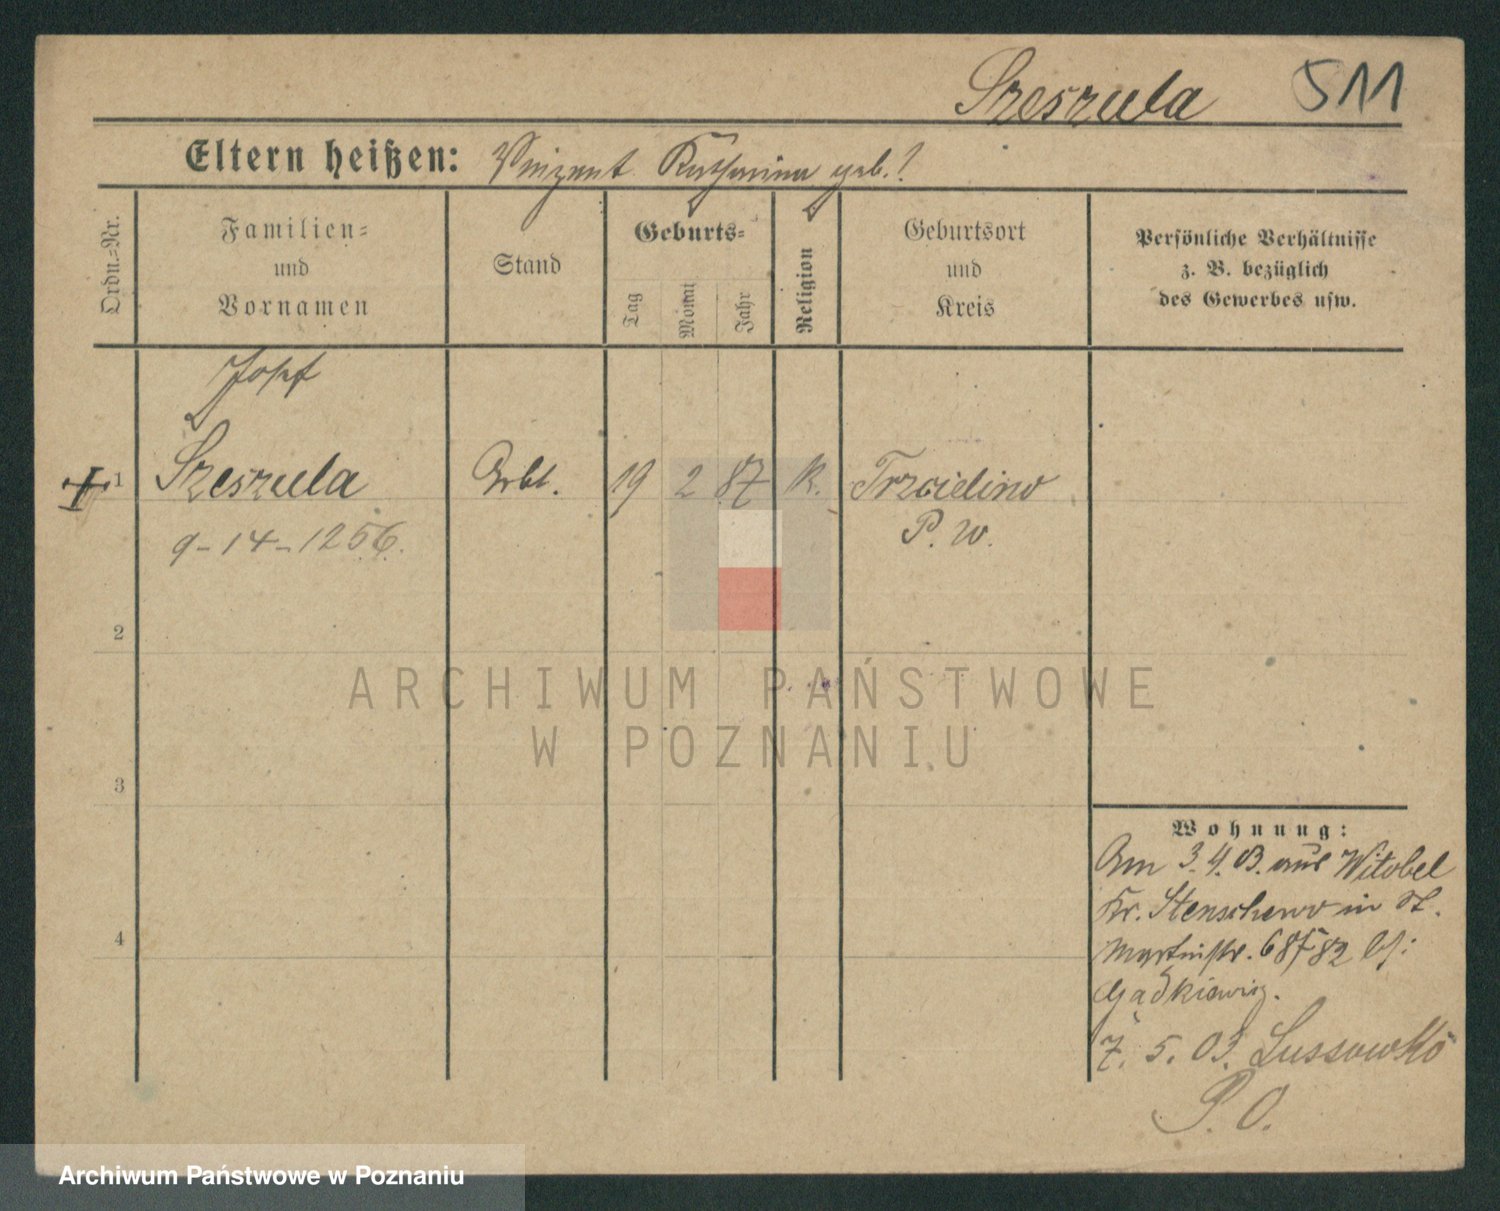 Szeszula 511
Eltern heißen: Vinzent Katharina geb. ?
Ordn.-Nr.
Familien-
und
Vornamen
Stand
Geburts-
Tag
Monat
Jahr
Religion
Geburtsort
und
Kreis
Persönliche Verhältnisse
z. B. bezüglich
des Gewerbes usw.
Josef
1 Szeszula Arbt. 19 2 87 K. Trzcielino
9-14-1256. P. W.
2
3
4
Wohnung:
Am 3.4.03. aus Witobel
Kr. Stenschewo in St.
Martinstr. 68 82 bei
Gadkiewicz.
7. 5. 03. Lussowko
P. O.
ARCHIWUM PAŃSTWOWE
W POZNANIU
Archiwum Państwowe w Poznaniu